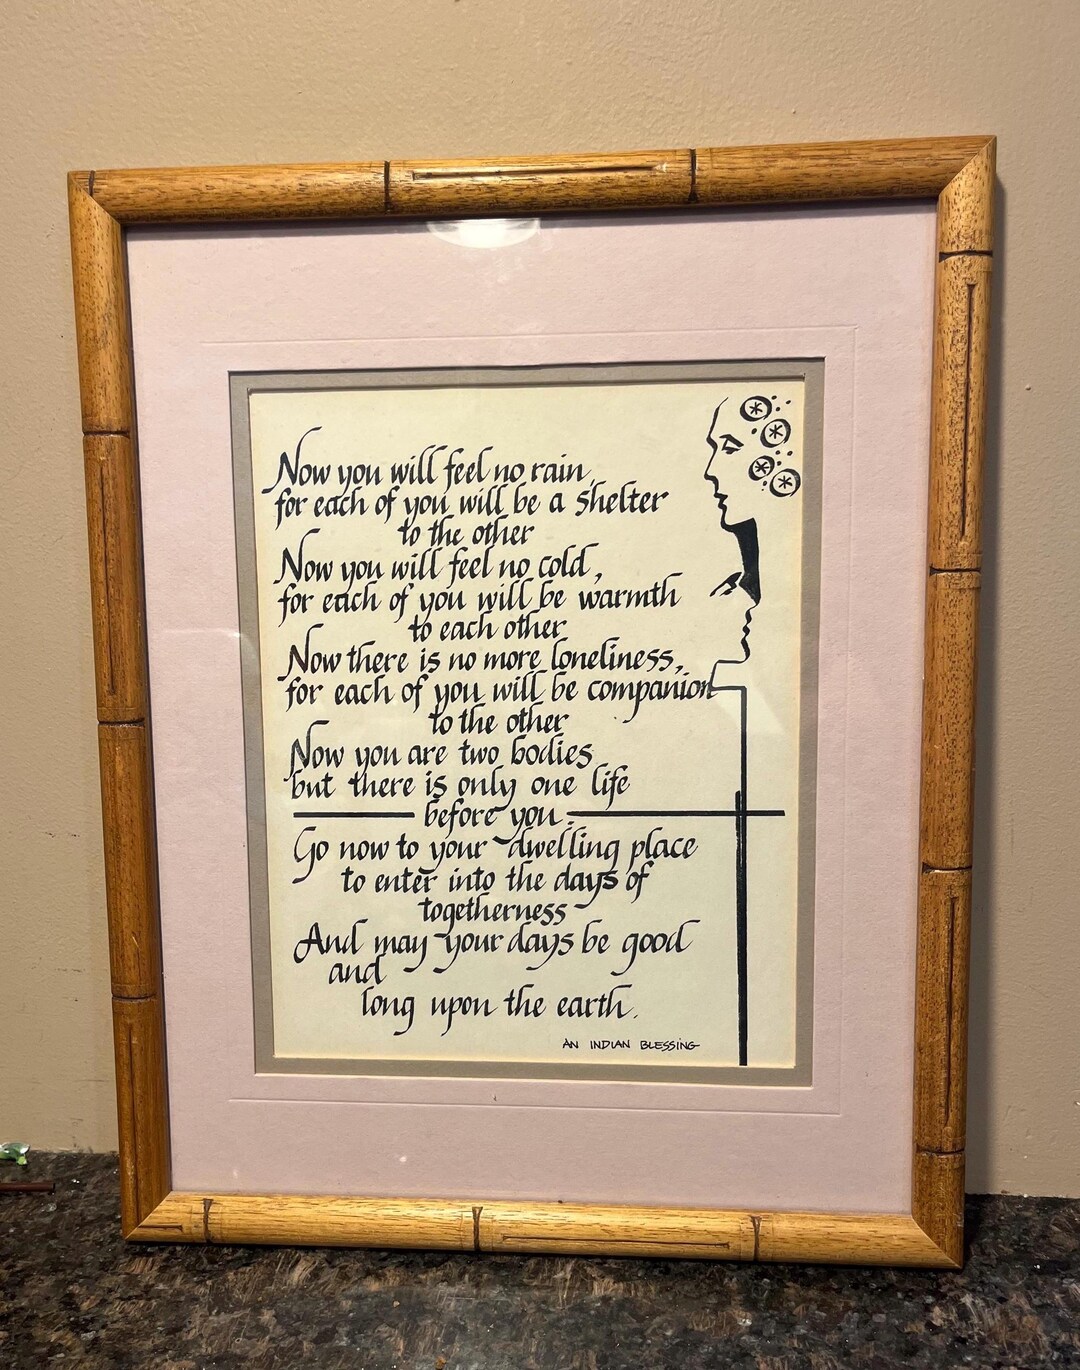 Now you will feel no rain,
for each of you will be a shelter
to the other
Now you will feel no cold,
for each of you will be warmth
to each other
Now there is no more loneliness,
for each of you will be companion
to the other
Now you are two bodies
but there is only one life
before you.
Go now to your dwelling place
to enter into the days of
togetherness
And may your days be good
and
long upon the earth.
AN INDIAN BLESSING